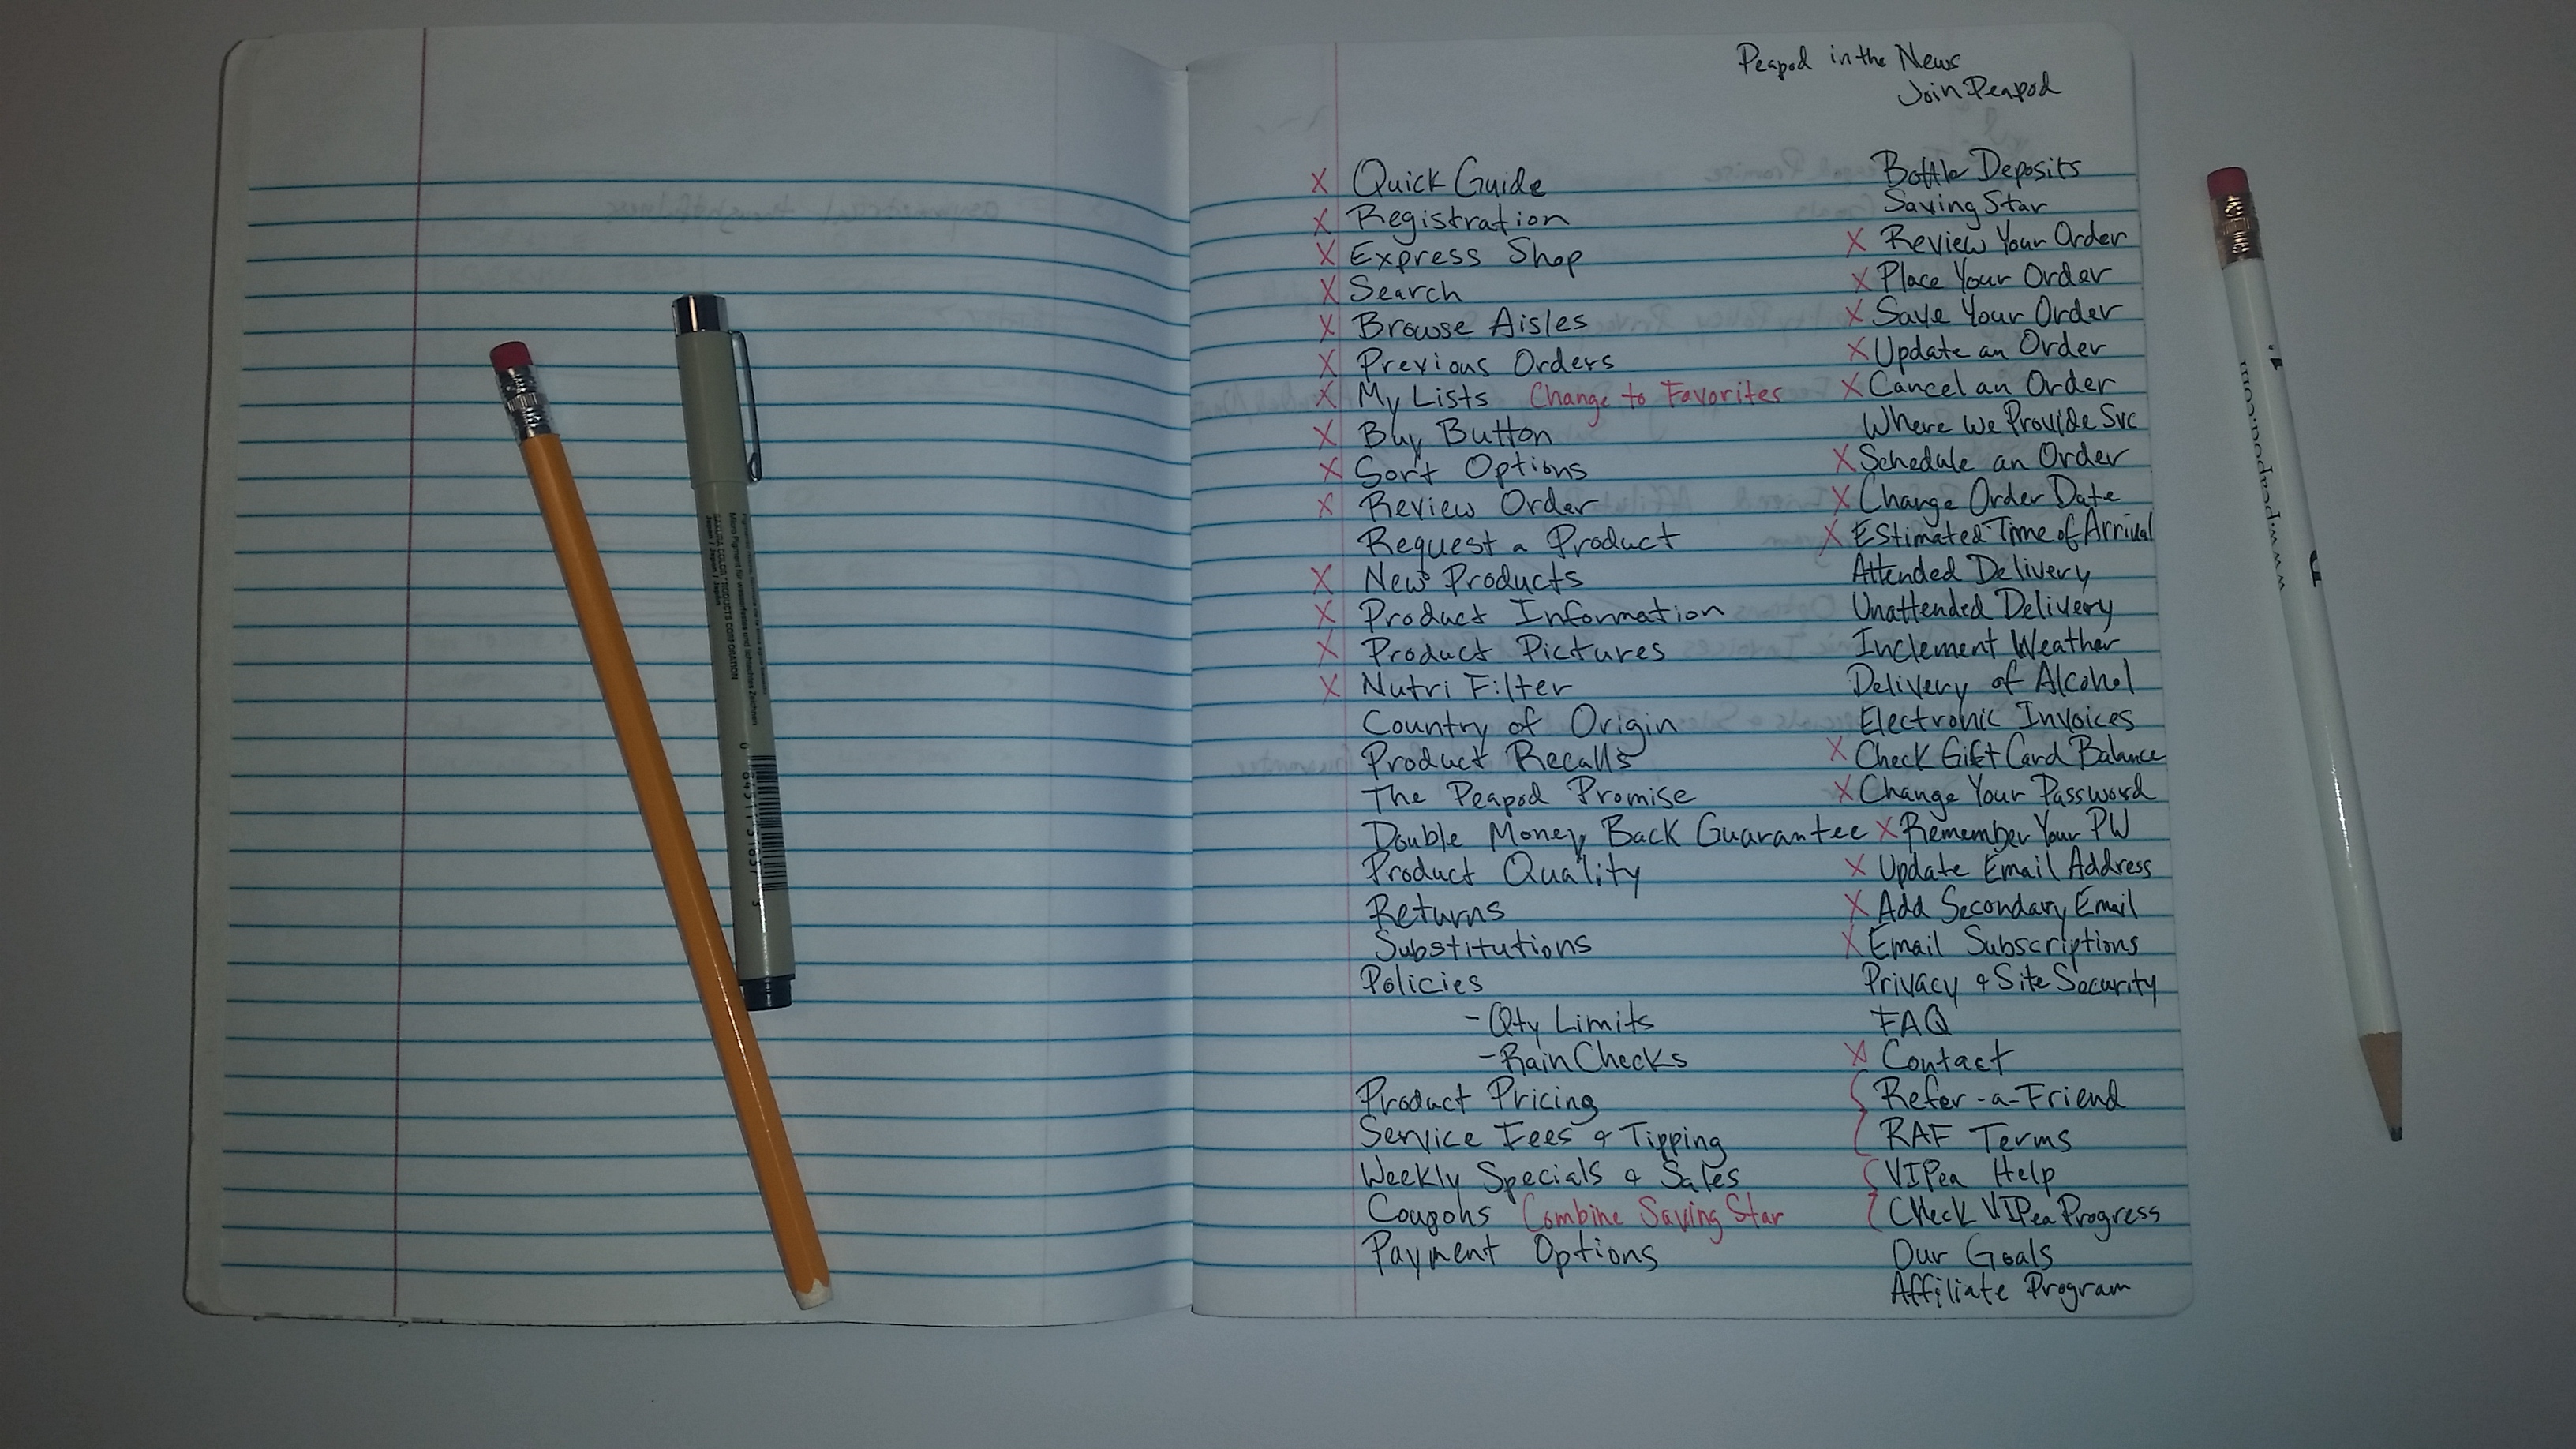 Peapod in the News
Join Peapod
X Quick Guide
X Registration
X Express Shop
X Search
X Browse Aisles
X Previous Orders
X My Lists Change to Favorites
X Buy Button
X Sort Options
X Review Order
Request a Product
X New Products
X Product Information
X Product Pictures
X Nutri Filter
Country of Origin
Product Recalls
The Peapod Promise
Double Money Back Guarantee
Product Quality
Returns
Substitutions
Policies
- Qty Limits
- Rain Checks
Product Pricing
Service Fees & Tipping
Weekly Specials & Sales
Coupons Combine Saving Star
Payment Options
Bottle Deposits
Saving Star
X Review Your Order
X Place Your Order
X Save Your Order
X Update an Order
X Cancel an Order
Where We Provide Svc
X Schedule an Order
X Change Order Date
X Estimated Time of Arrival
Attended Delivery
Unattended Delivery
Inclement Weather
Delivery of Alcohol
Electronic Invoices
X Check Gift Card Balance
X Change Your Password
X Remember Your PW
X Update Email Address
X Add Secondary Email
X Email Subscriptions
Privacy & Site Security
FAQ
X Contact
Refer-a-Friend
RAF Terms
VIPea Help
Check VIPea Progress
Our Goals
Affiliate Program
SAKURA COLOR PRODUCTS CORPORATION
Japan / Japon / Japón
www.peapod.com